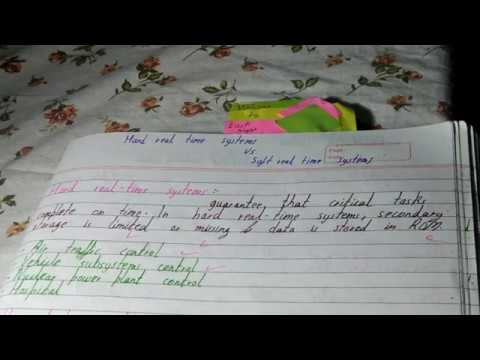 Hard real time systems
Vs.
Soft real time systems
Hard real-time systems:-
guarantee, that critical tasks
complete on time. In hard real-time systems, secondary
storage is limited or missing & data is stored in ROM.
- Air traffic control
- Vehicle subsystems control
- Nuclear power plant control
- Hospital